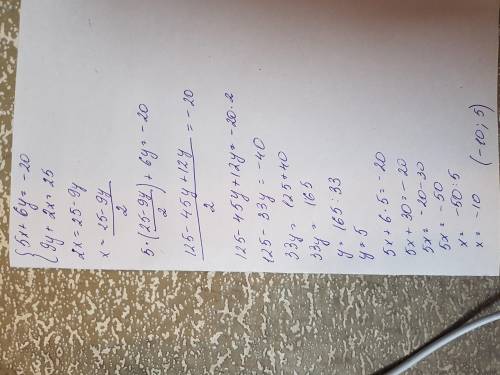 {5x + 6y = -20
{9y + 2x = 25
2x = 25 - 9y
x = (25 - 9y)/2
5 · (25 - 9y)/2 + 6y = -20
(125 - 45y + 12y)/2 = -20
125 - 45y + 12y = -20 · 2
125 - 33y = -40
33y = 125 + 40
33y = 165
y = 165 : 33
y = 5
5x + 6 · 5 = -20
5x + 30 = -20
5x = -20 - 30
5x = -50
x = -50 : 5
x = -10
(-10; 5)